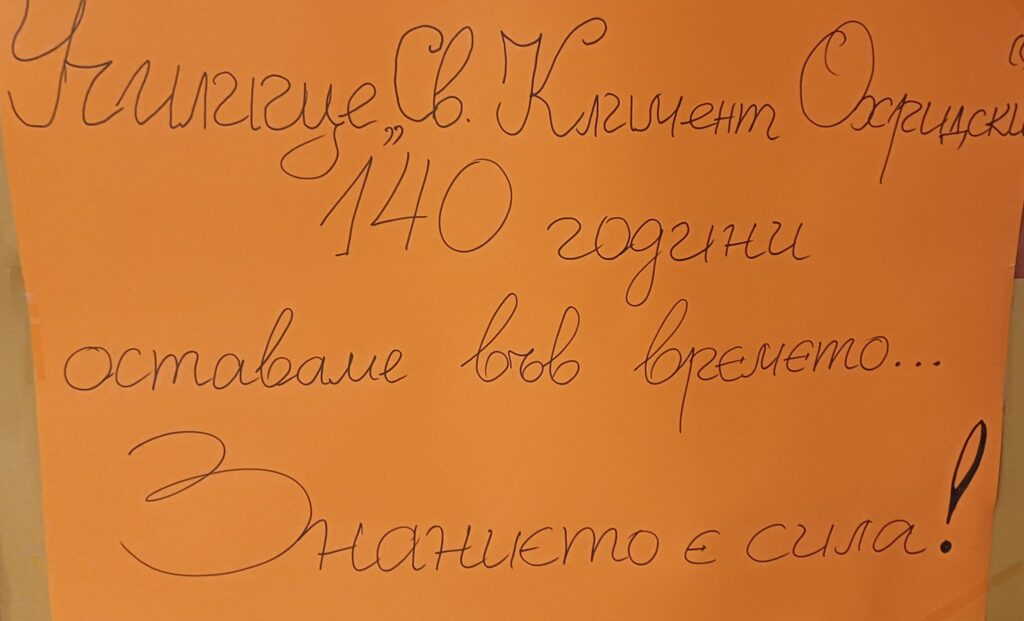 Училище „Св. Климент Охридски“
140 години
оставаме във времето...
Знанието е сила!